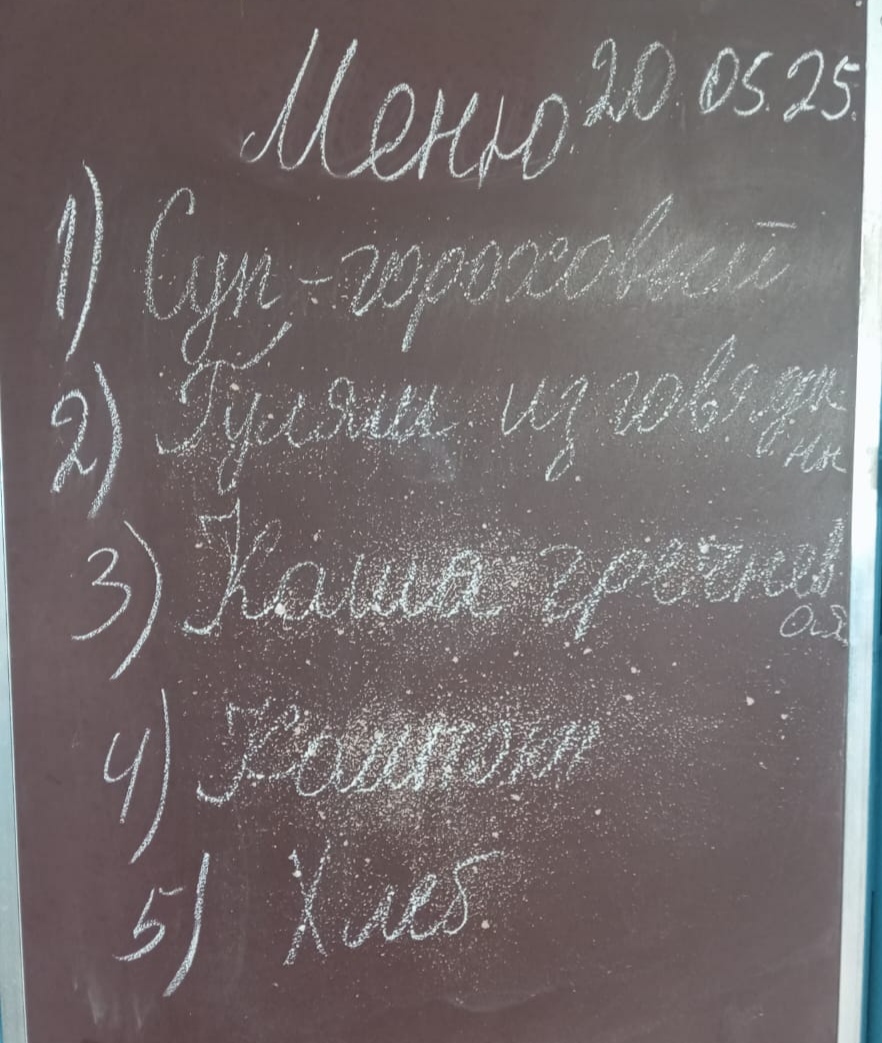 Меню 20.05.25.
1) Суп - гороховый
2) Гуляш из говяди
ны
3) Каша гречнев
ая
4) Компот
5) Хлеб